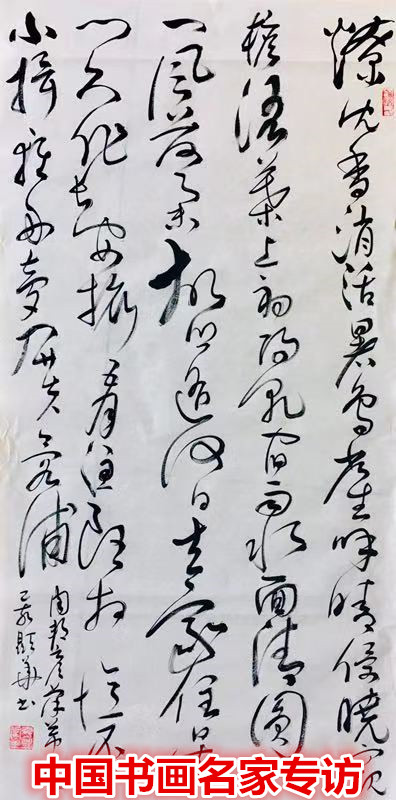 燎沈香消溽暑鸟雀呼晴侵晓窥
檐语葉上初阳乾宿雨水面清圆
一一风荷举故乡遥何日去家住吴
门久作长安旅五月渔郎相忆否
小楫轻舟梦入芙蓉浦
周邦彦
华书
中国书画名家专访